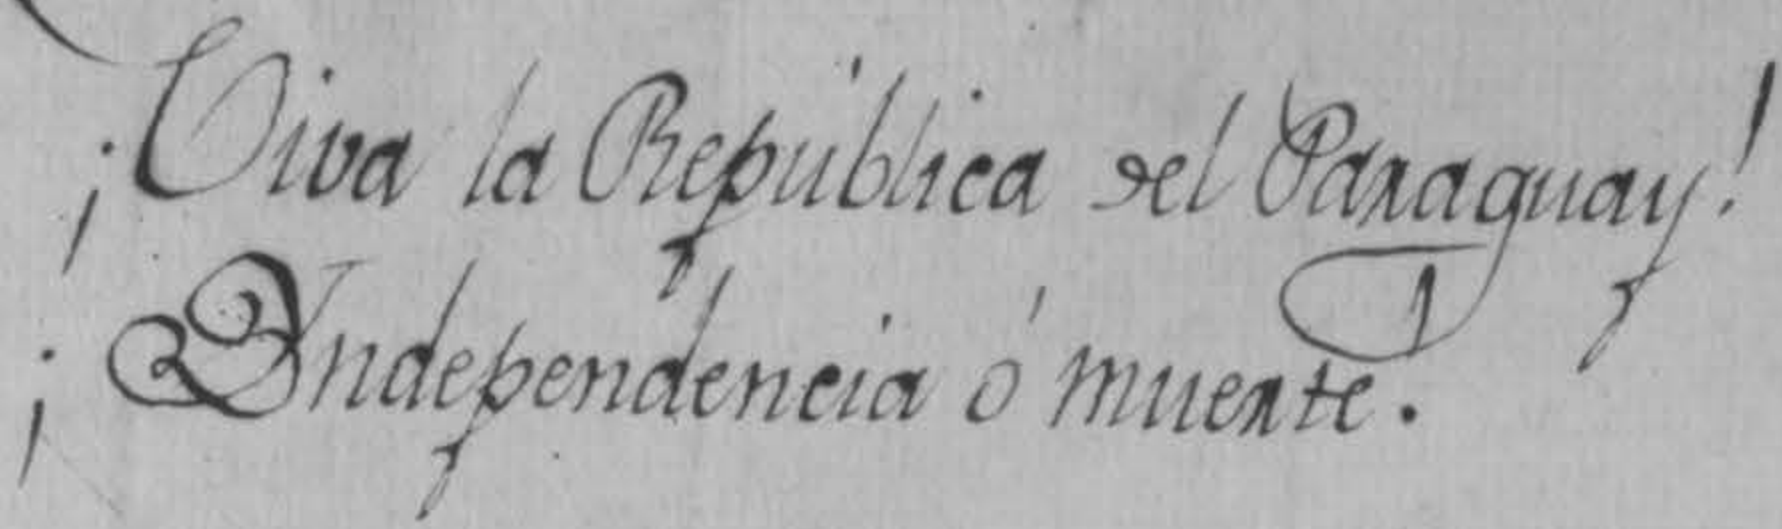 ¡Viva la República del Paraguay!
¡Independencia ó muerte!